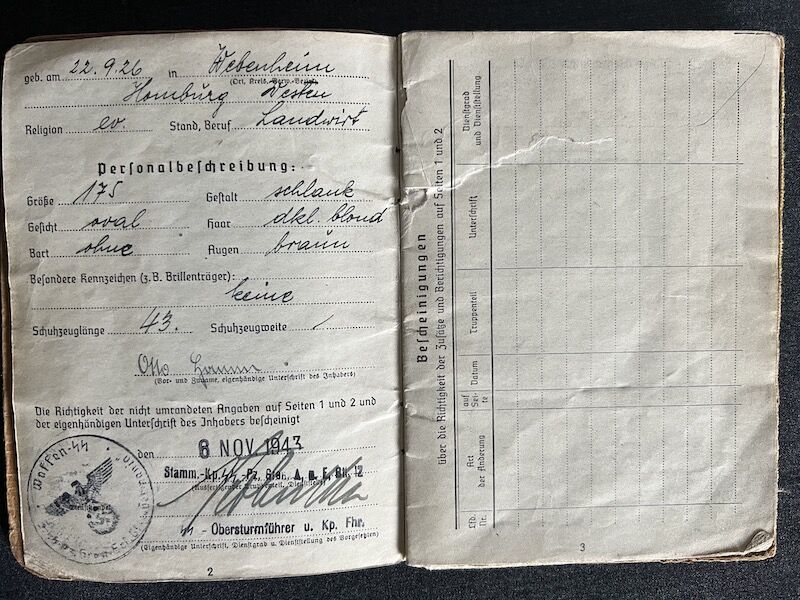 geb. am 22.9.26 in Webenheim
(Ort, Kreis, Verw.-Bezirk)
Homburg Westm
Religion ev Stand, Beruf Landwirt
Personalbeschreibung:
Größe 175 Gestalt schlank
Gesicht oval Haar dkl. blond
Bart ohne Augen braun
Besondere Kennzeichen (z.B. Brillenträger):
keine
Schuhzeuglänge 43. Schuhzeugweite /
Otto
(Vor- und Zuname, eigenhändige Unterschrift des Inhabers)
Die Richtigkeit der nicht umrandeten Angaben auf Seiten 1 und 2 und
der eigenhändigen Unterschrift des Inhabers bescheinigt
den 8 NOV. 1943
Stamm-Kp.SS-Pz. Gren. A. u. E. Btl. 12
(Ausfertigender Truppenteil, Dienststelle)
SS - Obersturmführer u. Kp. Fhr.
(Eigenhändige Unterschrift, Dienstgrad u. Dienststellung des Vorgesetzten)
Waffen-SS
2
Bescheinigungen
über die Richtigkeit der Zusätze und Berichtigungen auf Seiten 1 und 2
Lfd. Nr.
Art der Änderung
auf Seite
Datum
Truppenteil
Unterschrift
Dienstgrad und Dienststellung
3